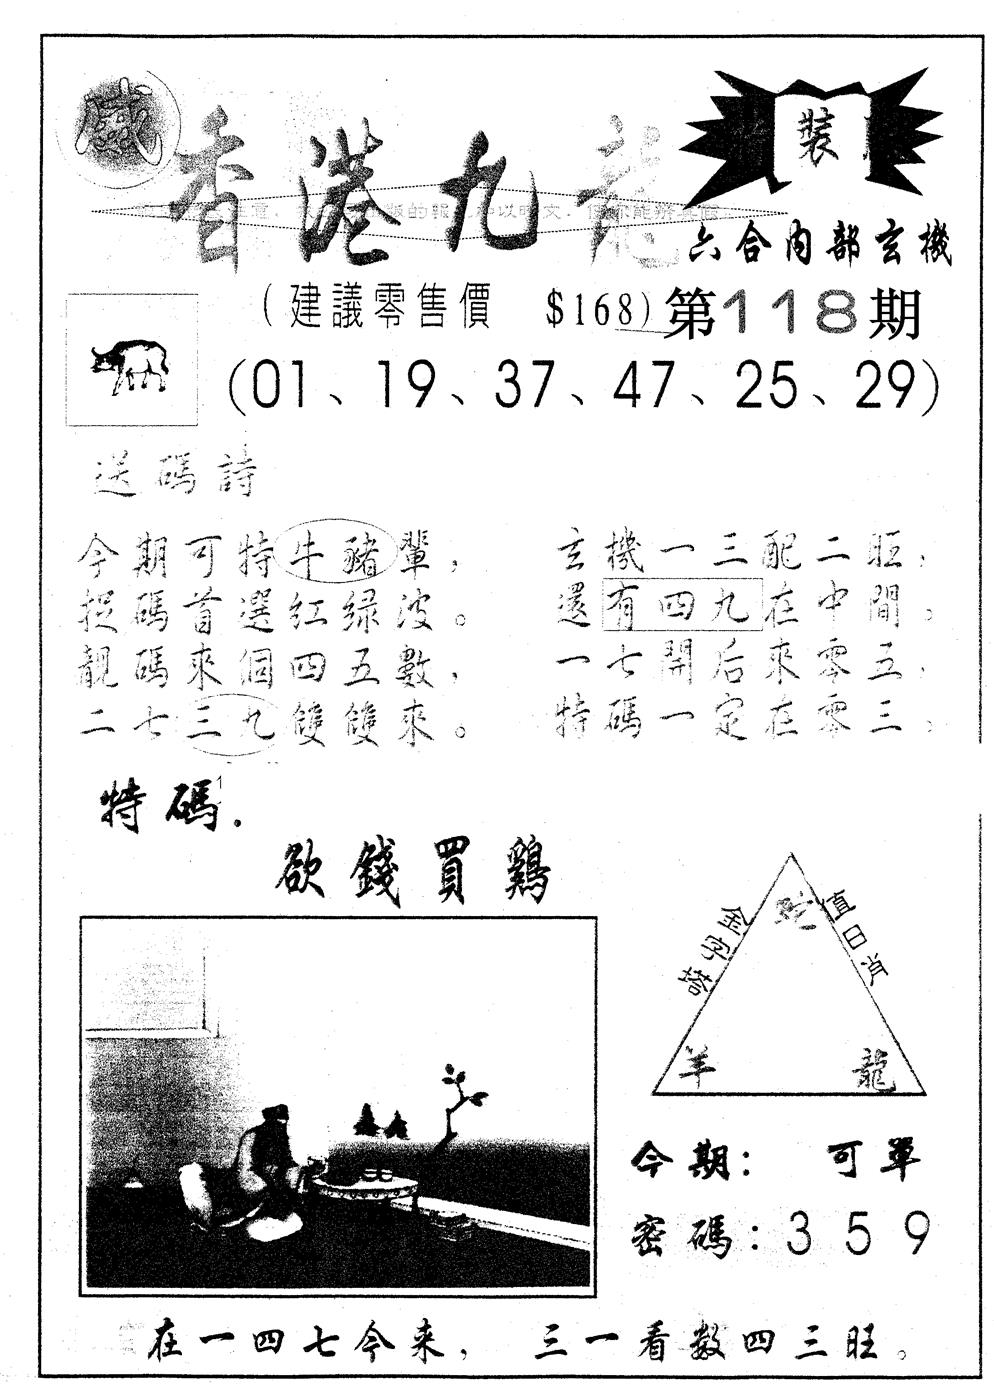 香港九龍
裝
六合內部玄機
(建議零售價 $168) 第118期
(01、19、37、47、25、29)
送碼詩
今期可特牛豬輩，
捉碼首選紅绿波。
靚碼來個四五數，
二七三九雙雙來。
玄機一三配二旺，
還有四九在中間。
一七開后來零五，
特碼一定在零三。
特碼.
欲錢買鷄
金字塔
值日肖
蛇
羊 龍
今期： 可單
密碼：3 5 9
在一四七今来， 三一看数四三旺。